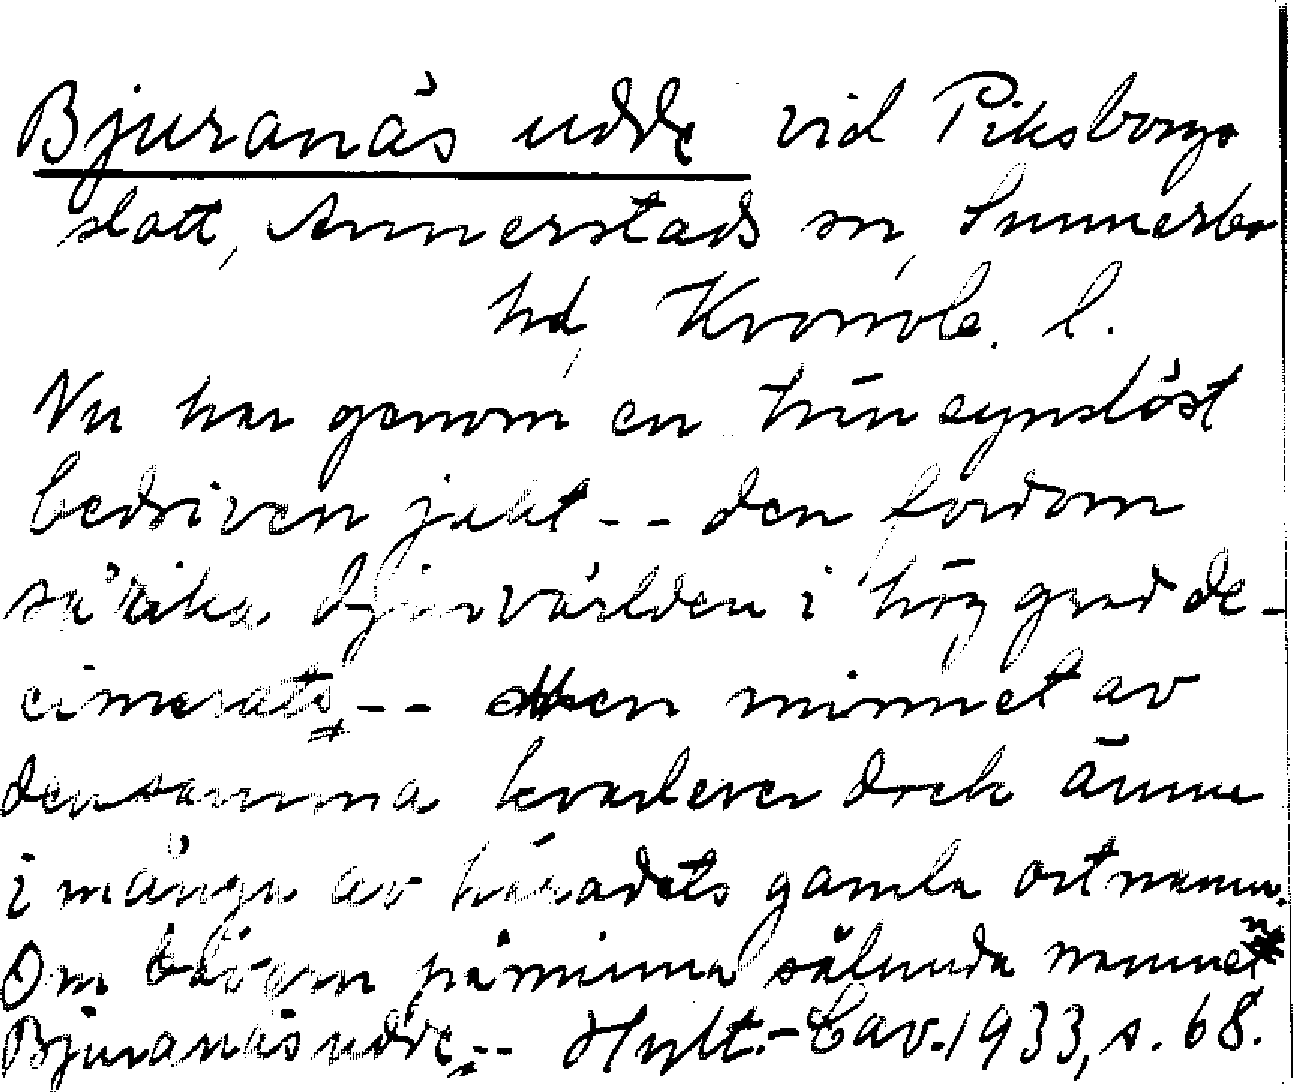 Bjuranäs udde vid Piksborgs
slott, Annerstads sn, Sunnerbo
hd, Kronob. l.
Nu har genom en hänsynslöst
bedriven jakt -- den fordom
så rika djurvärlden i hög grad de-
cimerats, -- Men minnet av
densamma kvarlever dock ännu
i många av häradets gamla ortnamn.
Om bävern påminna sålunda namnen
Bjuranäs udde, -- Hylt.-Cav. 1933, s. 68.